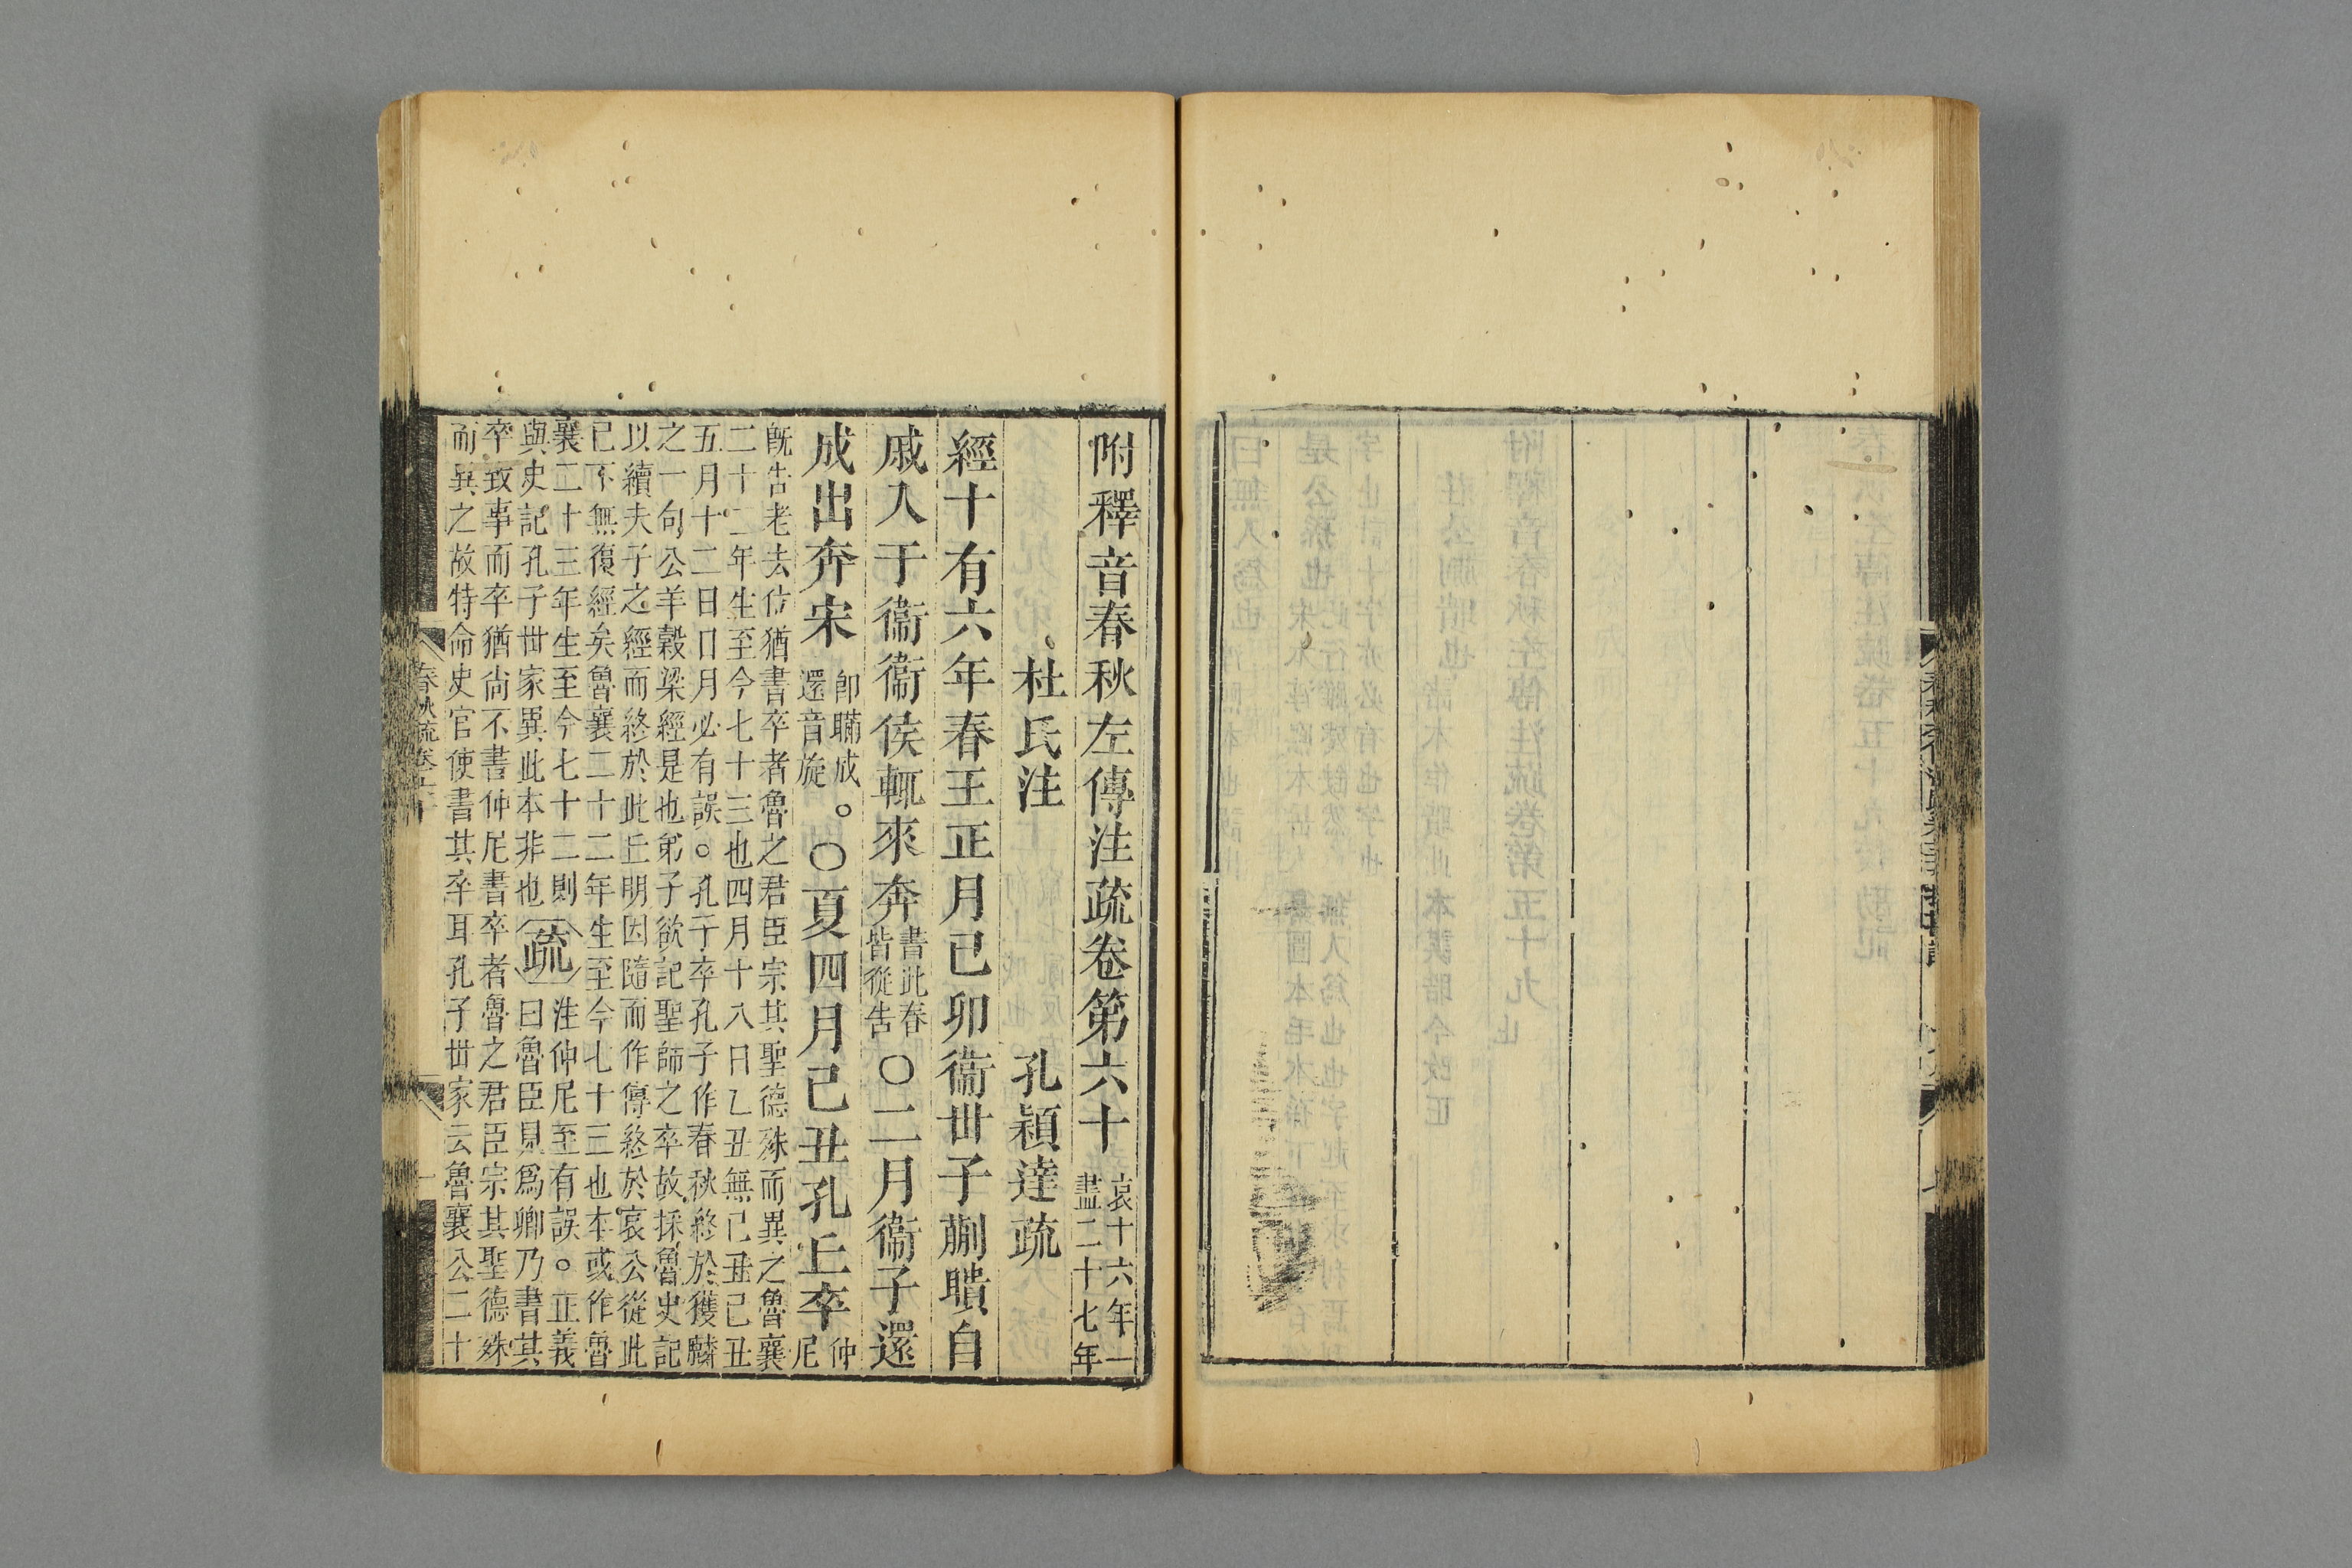 附釋音春秋左傳注疏卷第六十
哀十六年一
盡二十七年
杜氏注 孔穎達疏
經十有六年春王正月己卯衞世子蒯聵自
戚入于衞衞侯輒來奔
書此春
皆從告
○二月衞子還
成出奔宋
卽瞞成
還音旋
。○夏四月己丑孔丘卒
仲
尼
旣告老去位猶書卒者魯之君臣宗其聖德殊而異之魯襄
二十二年生至今七十三也四月十八日乙丑無己丑己丑
五月十二日日月必有誤。孔子卒孔子作春秋終於獲麟
之一句公羊穀梁經是也弟子欲記聖師之卒故採魯史記
以續夫子之經而終於此丘明因隨而作傳終於哀公從此
已下無復經矣魯襄二十二年生至今七十三也本或作魯
襄二十三年生至今七十二則
與史記孔子世家異此本非也
疏
注仲尼至有誤。正義
曰魯臣見爲卿乃書其
卒致事而卒猶尙不書仲尼書卒者魯之君臣宗其聖德殊
而異之故特命史官使書其卒耳孔子世家云魯襄公二十
春秋疏卷六十
一